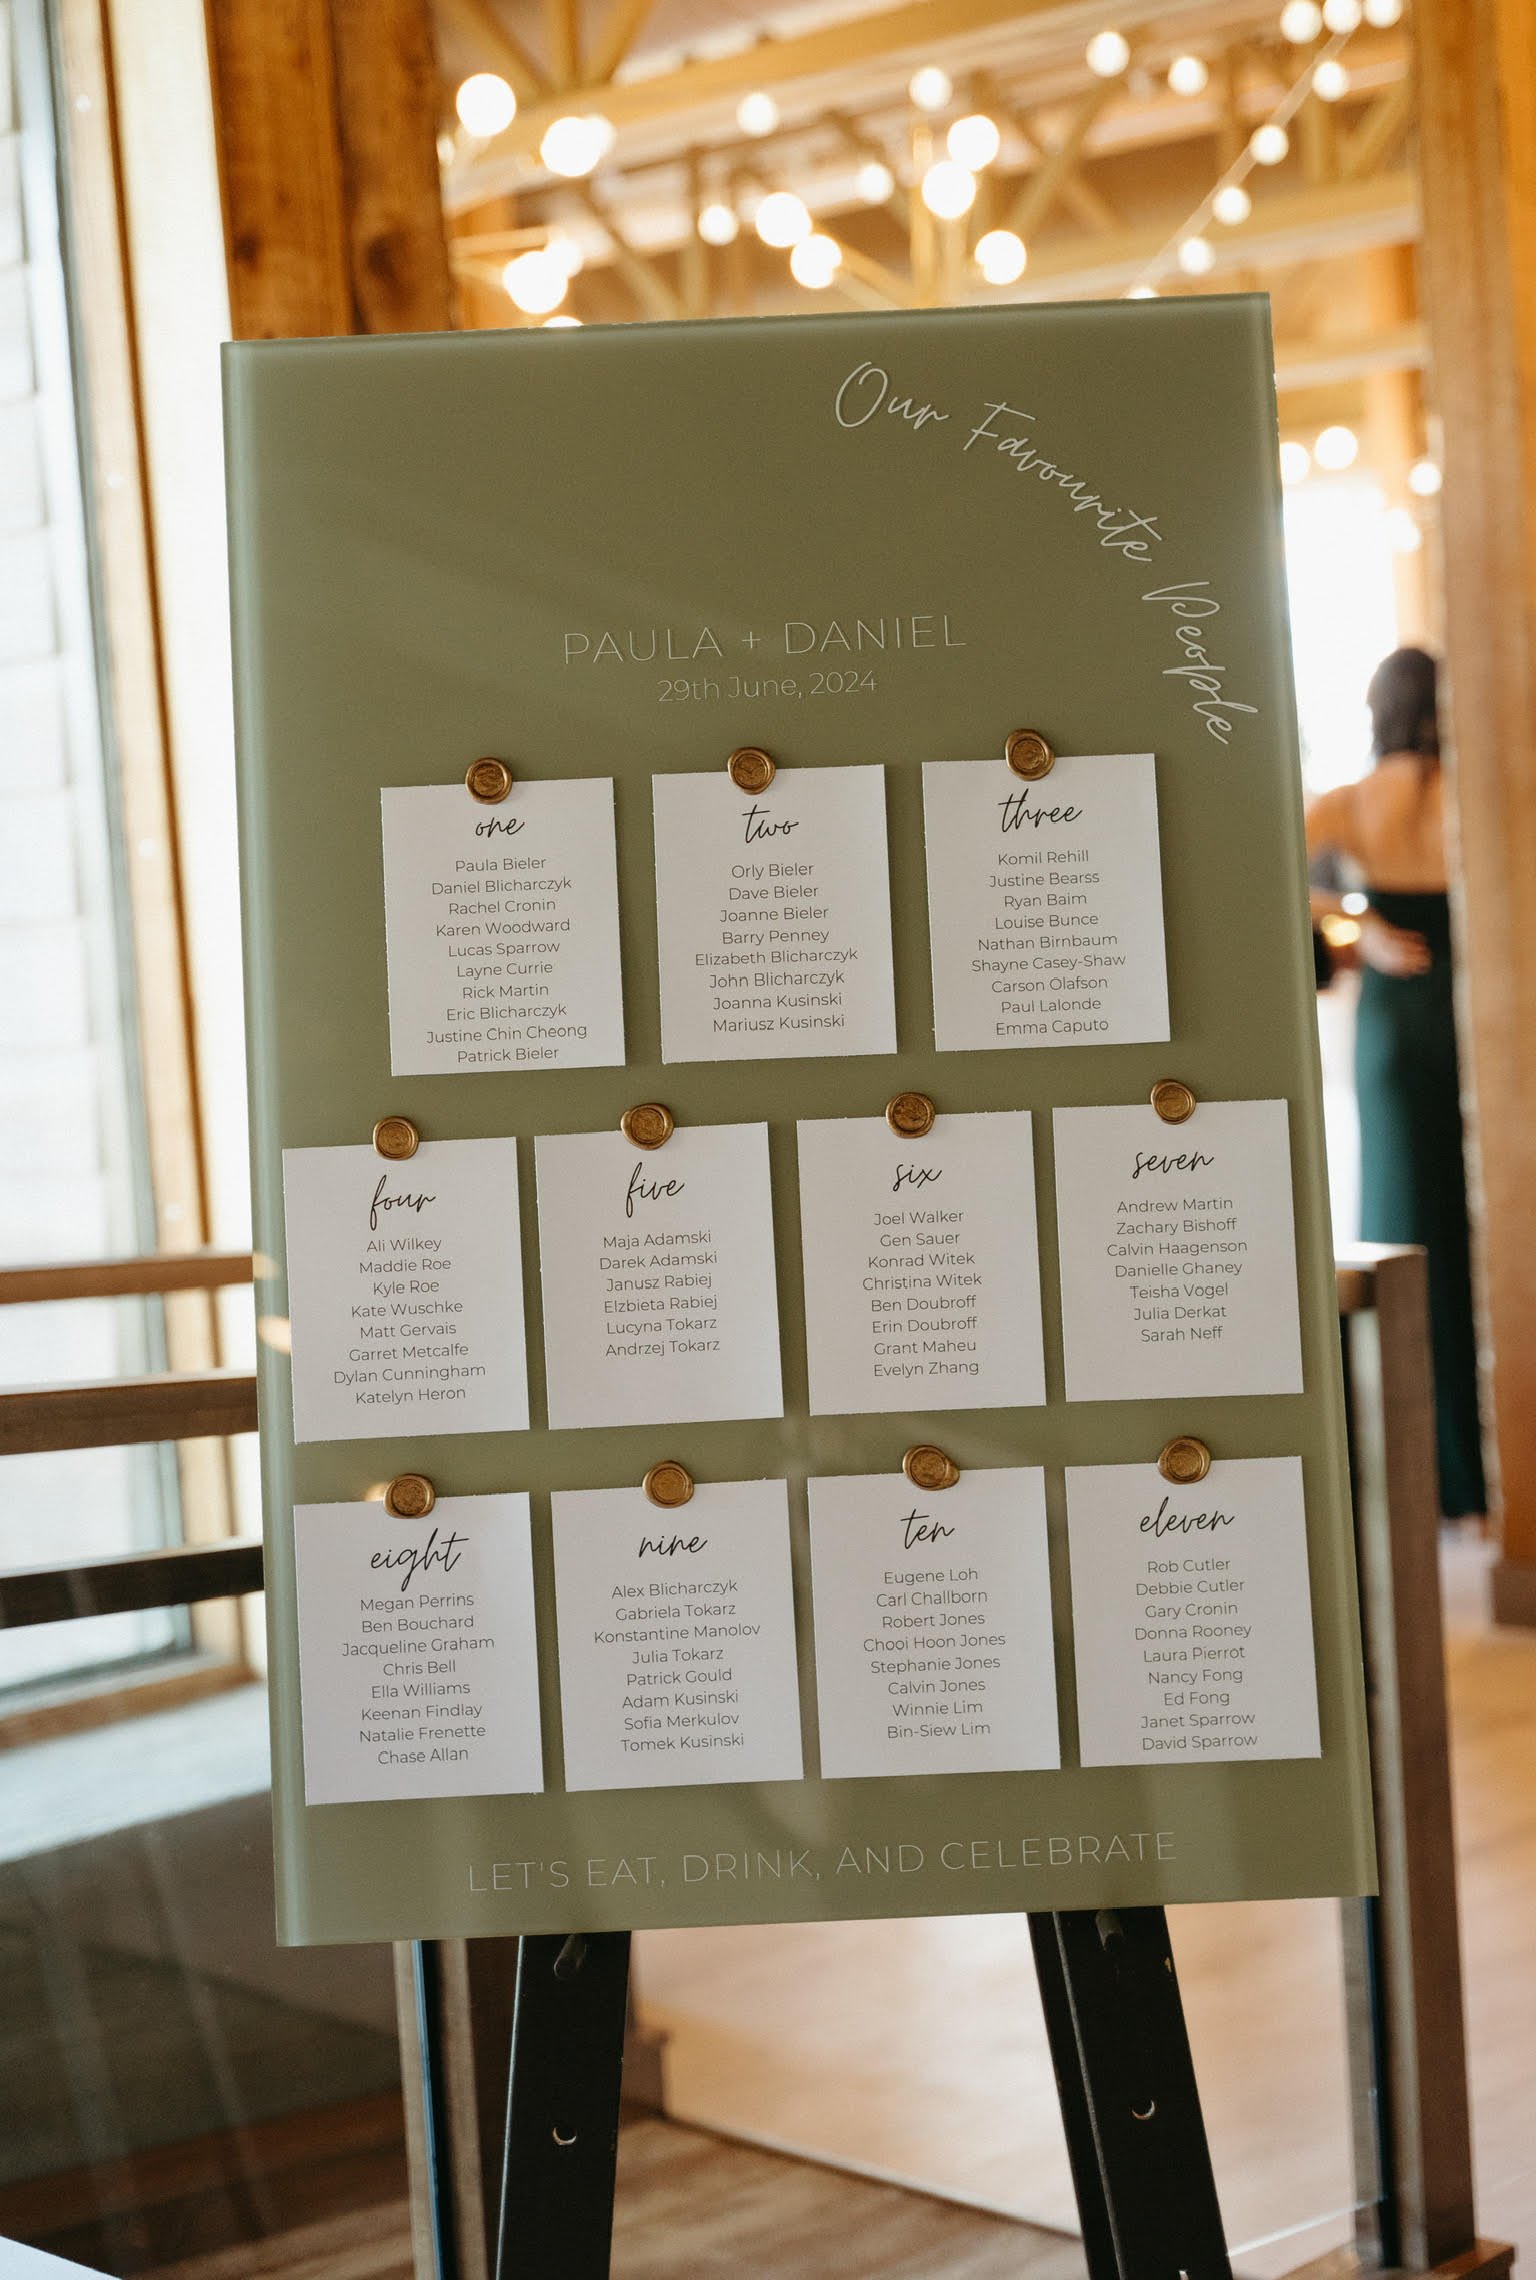 Our Favourite People
PAULA + DANIEL
29th June, 2024
one
Paula Bieler
Daniel Blicharczyk
Rachel Cronin
Karen Woodward
Lucas Sparrow
Layne Currie
Rick Martin
Eric Blicharczyk
Justine Chin Cheong
Patrick Bieler
two
Orly Bieler
Dave Bieler
Joanne Bieler
Barry Penney
Elizabeth Blicharczyk
John Blicharczyk
Joanna Kusinski
Mariusz Kusinski
three
Komil Rehill
Justine Bearss
Ryan Baim
Louise Bunce
Nathan Birnbaum
Shayne Casey-Shaw
Carson Olafson
Paul Lalonde
Emma Caputo
four
Ali Wilkey
Maddie Roe
Kyle Roe
Kate Wuschke
Matt Gervais
Garret Metcalfe
Dylan Cunningham
Katelyn Heron
five
Maja Adamski
Darek Adamski
Janusz Rabiej
Elzbieta Rabiej
Lucyna Tokarz
Andrzej Tokarz
six
Joel Walker
Gen Sauer
Konrad Witek
Christina Witek
Ben Doubroff
Erin Doubroff
Grant Maheu
Evelyn Zhang
seven
Andrew Martin
Zachary Bishoff
Calvin Haagenson
Danielle Ghaney
Teisha Vogel
Julia Derkat
Sarah Neff
eight
Megan Perrins
Ben Bouchard
Jacqueline Graham
Chris Bell
Ella Williams
Keenan Findlay
Natalie Frenette
Chase Allan
nine
Alex Blicharczyk
Gabriela Tokarz
Konstantine Manolov
Julia Tokarz
Patrick Gould
Adam Kusinski
Sofia Merkulov
Tomek Kusinski
ten
Eugene Loh
Carl Challborn
Robert Jones
Chooi Hoon Jones
Stephanie Jones
Calvin Jones
Winnie Lim
Bin-Siew Lim
eleven
Rob Cutler
Debbie Cutler
Gary Cronin
Donna Rooney
Laura Pierrot
Nancy Fong
Ed Fong
Janet Sparrow
David Sparrow
LET'S EAT, DRINK, AND CELEBRATE